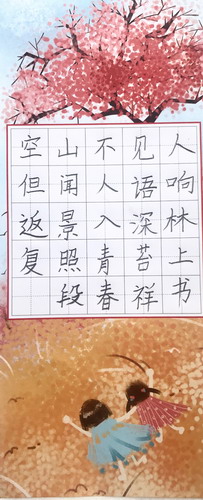 空山不见人
但闻人语响
返景入深林
复照青苔上
段春祥书